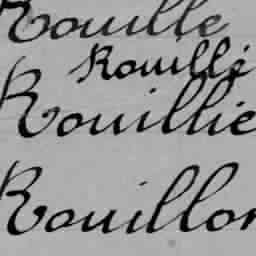 Rouille
Rouillé
Rouillie
Rouillon